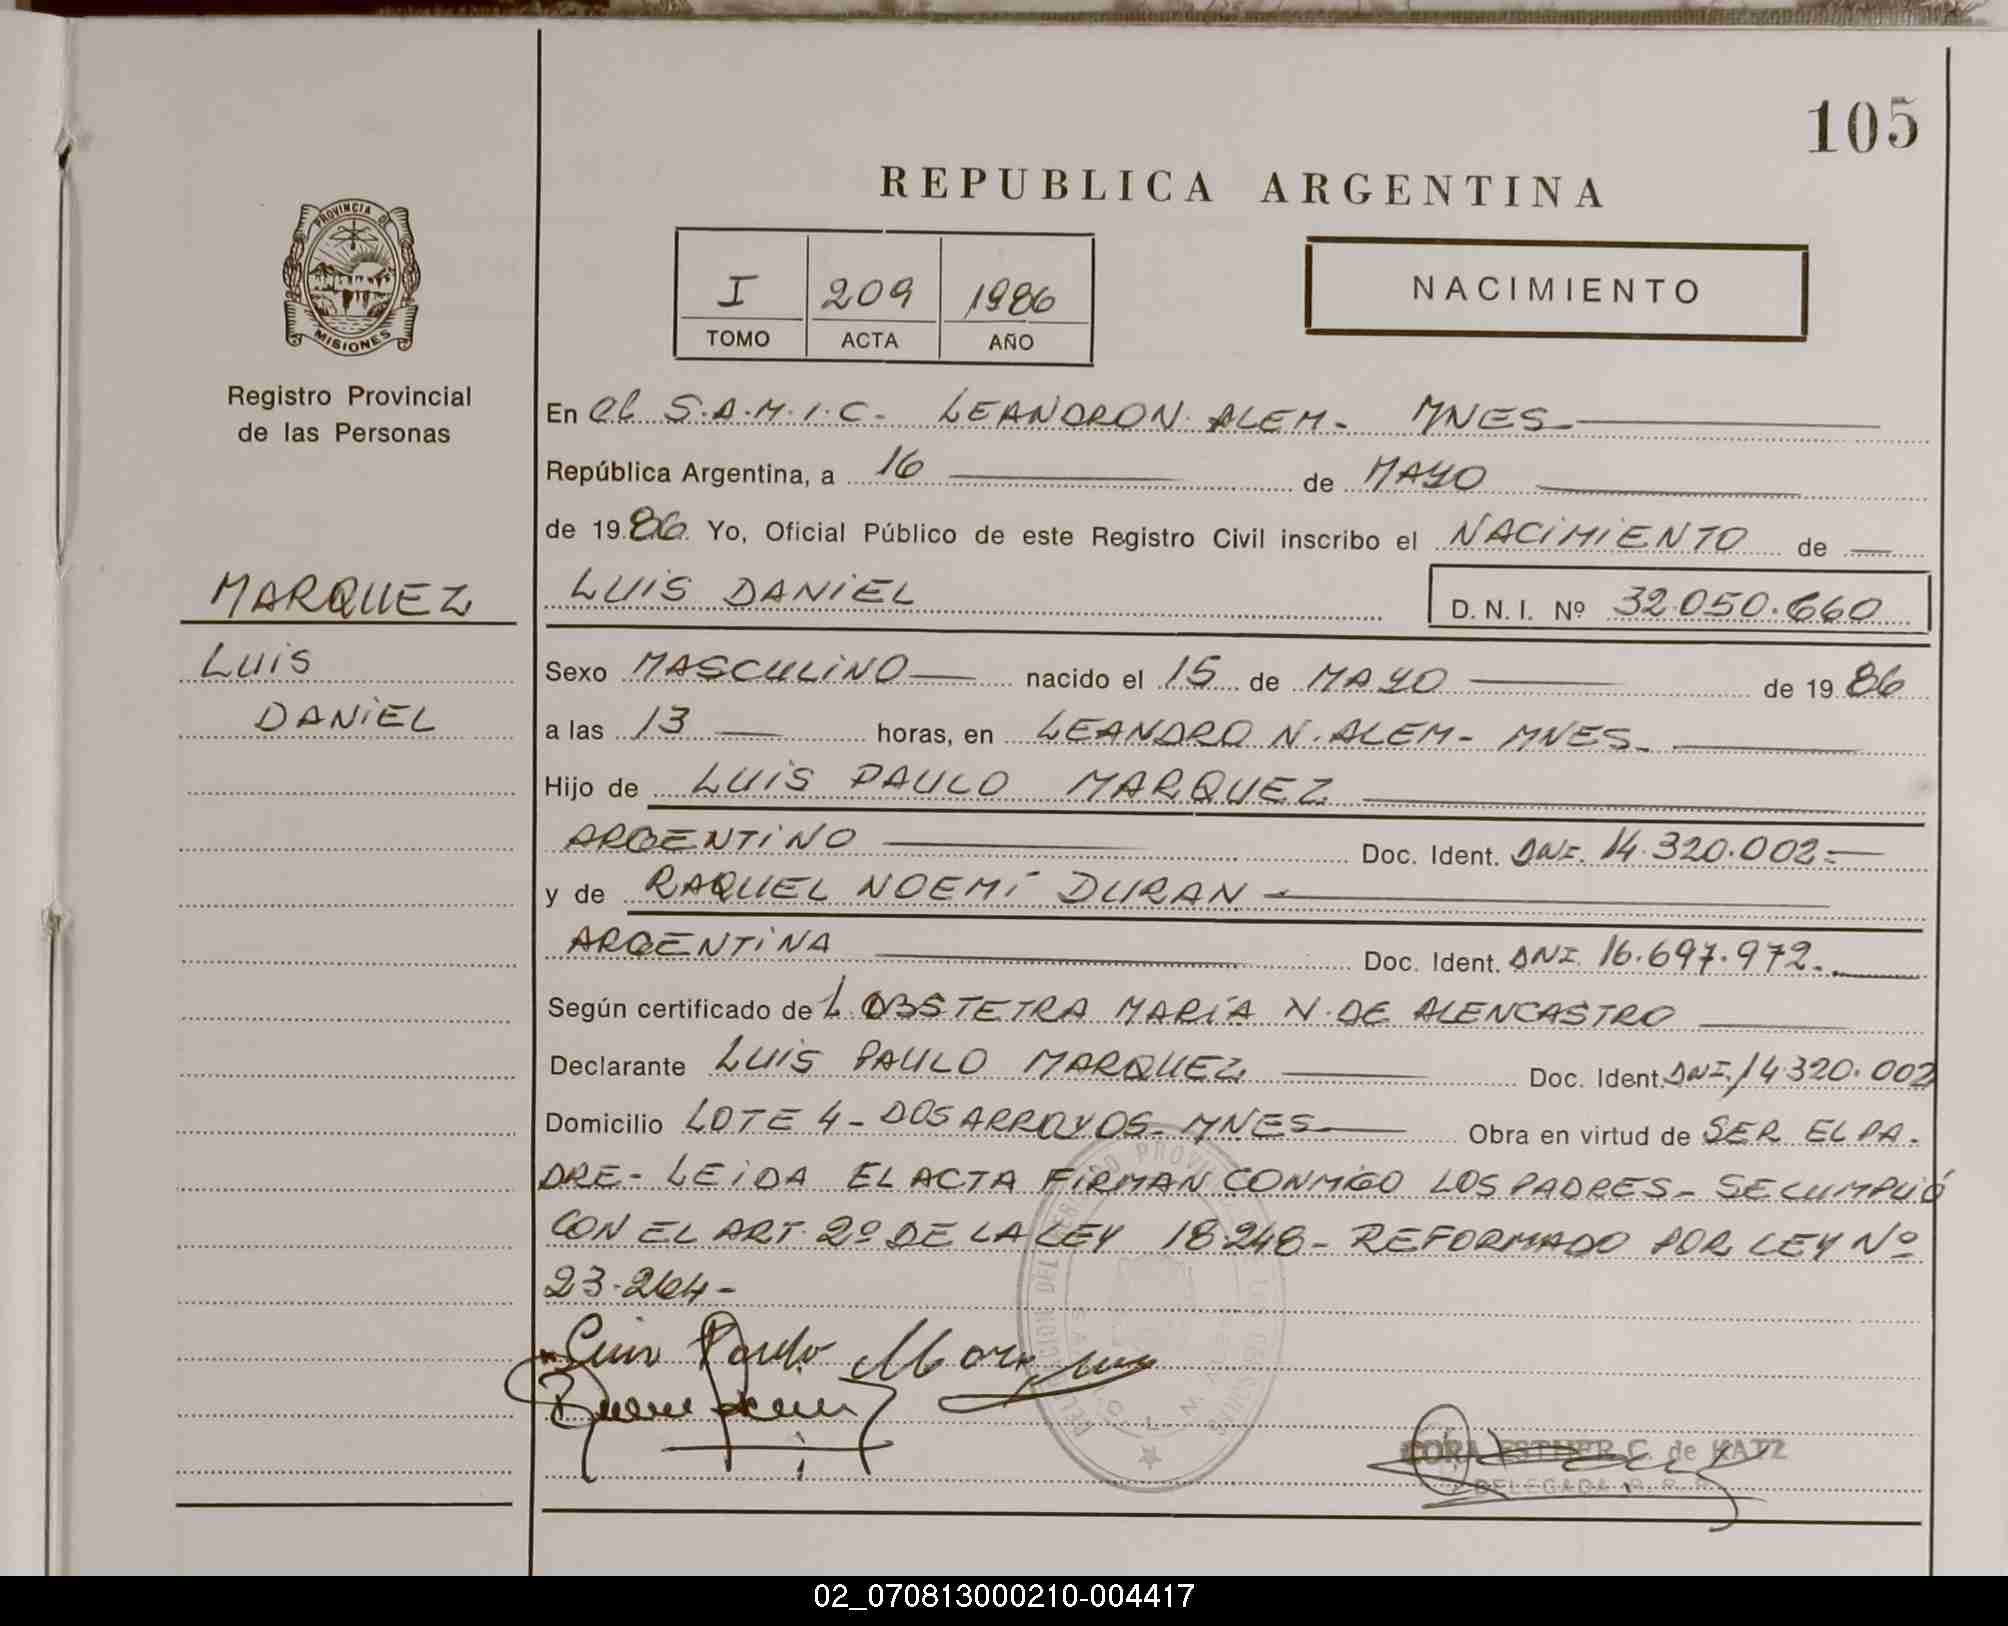 105
REPUBLICA ARGENTINA
PROVINCIA DE
MISIONES
Registro Provincial
de las Personas
I 209 1986
TOMO ACTA AÑO
NACIMIENTO
En el S.A.M.I.C. LEANDRO N. ALEM - MNES
República Argentina, a 16 de MAYO
de 1986 Yo, Oficial Público de este Registro Civil inscribo el NACIMIENTO de
MARQUEZ
LUIS DANIEL D.N.I. Nº 32.050.660
LUIS
DANIEL
Sexo MASCULINO nacido el 15 de MAYO de 1986
a las 13 horas, en LEANDRO N. ALEM - MNES
Hijo de LUIS PAULO MARQUEZ
ARGENTINO Doc. Ident. DNI. 14.320.002
y de RAQUEL NOEMÍ DURAN
ARGENTINA Doc. Ident. DNI 16.697.972
Según certificado de L. OBSTETRA MARÍA N. DE ALENCASTRO
Declarante LUIS PAULO MARQUEZ Doc. Ident. DNI. 14320.002
Domicilio LOTE 4 - DOS ARROYOS - MNES Obra en virtud de SER EL PA-
DRE - LEIDA EL ACTA FIRMAN CONMIGO LOS PADRES - SE CUMPLIÓ
CON EL ART. 2º DE LA LEY 18.248 - REFORMADO POR LEY Nº
23.264 -
Luis Paulo Marquez
CORA ESTHER C. de KATZ
DELEGADA
02_070813000210-004417